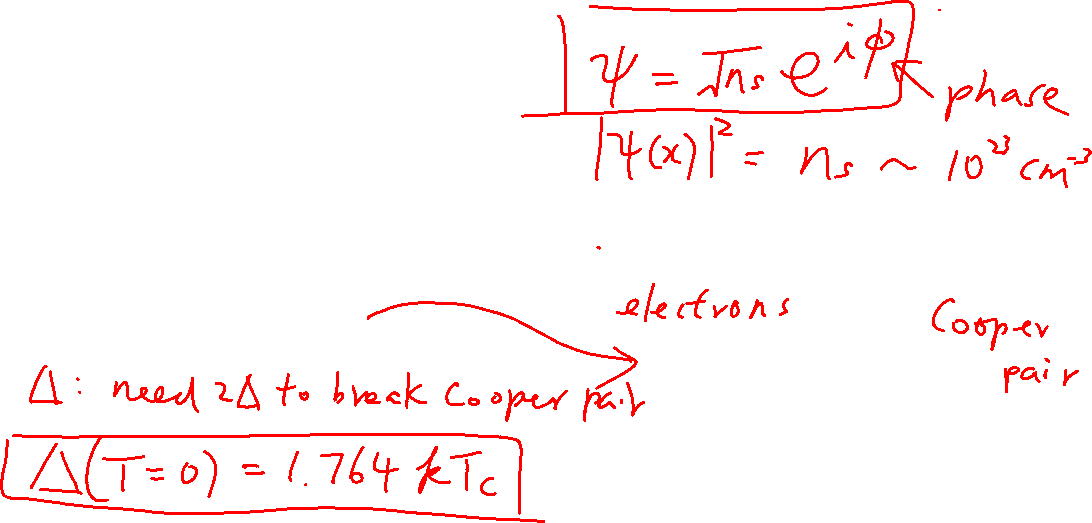 ψ = √ns e^{iϕ}
phase
|ψ(x)|² = ns ~ 10²³ cm⁻³
electrons
Cooper
pair
Δ: need 2Δ to break Cooper pair
Δ(T=0) = 1.764 kTc